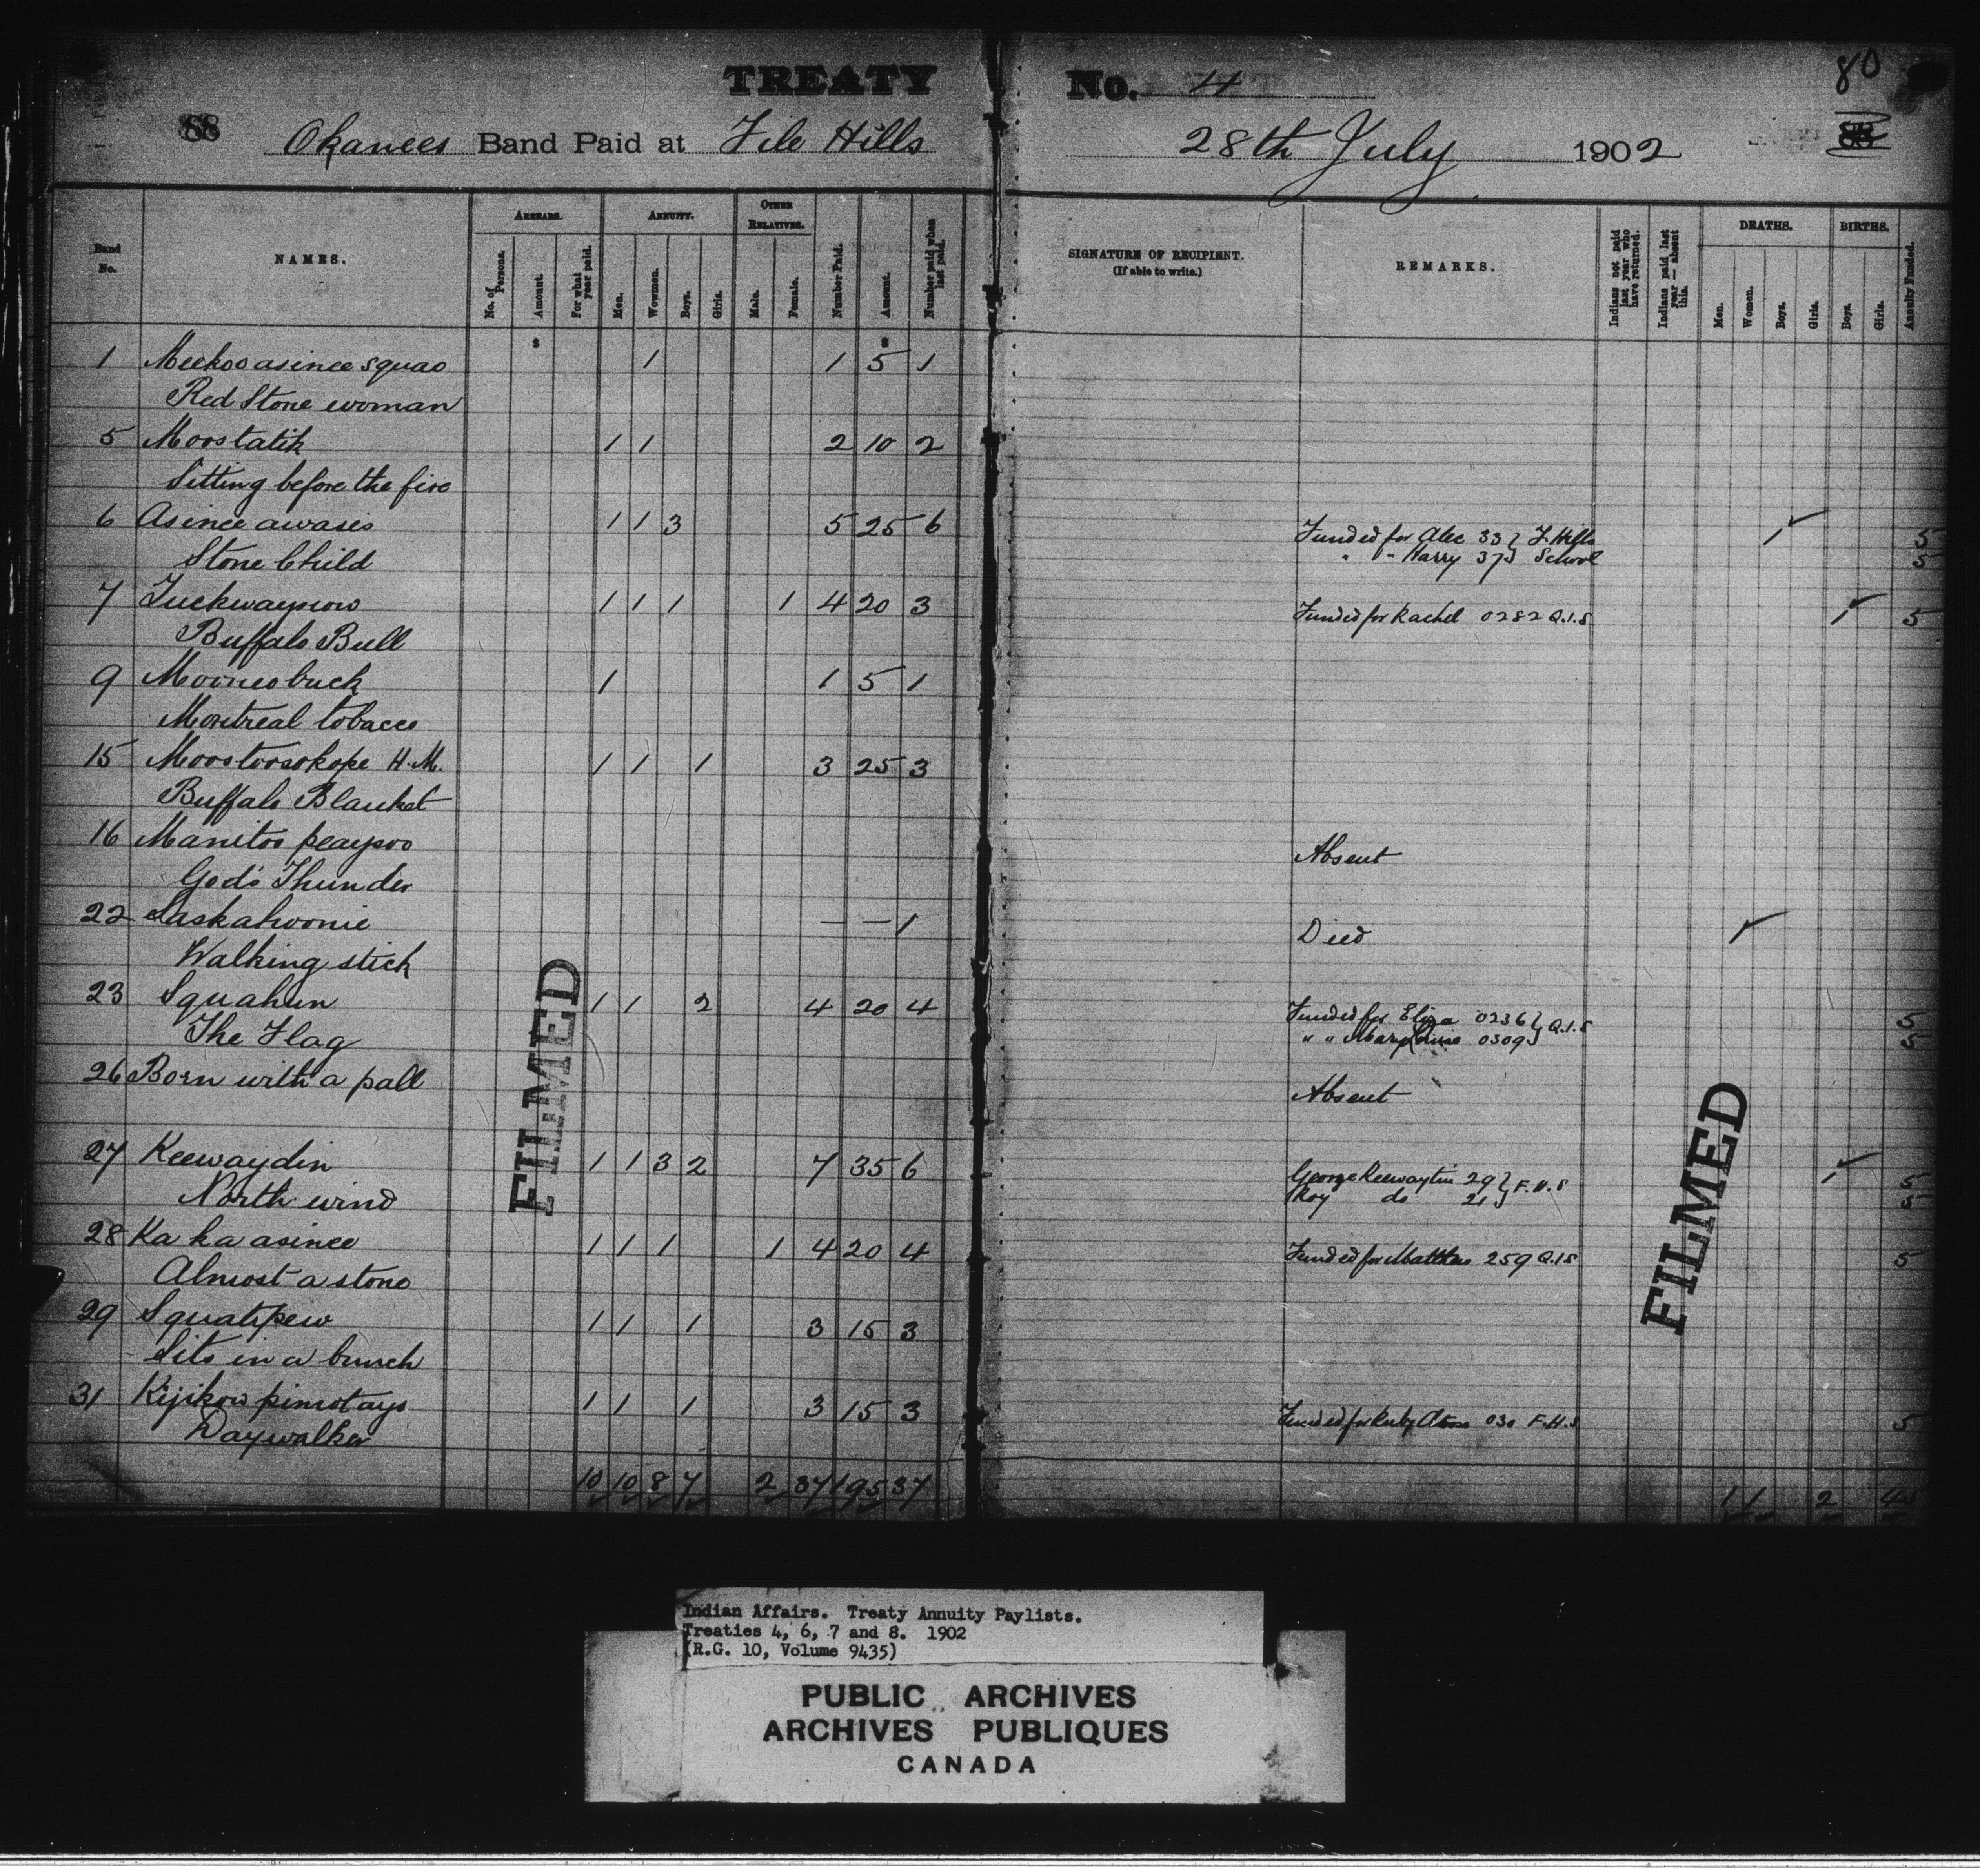 TREATY No. 4
80
88 Okanees Band Paid at File Hills 28th July 1902
Band No. NAMES. ARREARS. ANNUITY. OTHER RELATIVES. Number Paid. Amount. Number paid when last paid.
No. of Persons. Amount. For what year paid. Men. Women. Boys. Girls. Male. Female.
SIGNATURE OF RECIPIENT. (If able to write.) REMARKS. Indians not paid last year who have returned. Indians paid last year — absent this. DEATHS. BIRTHS. Annuity Funded.
Men. Women. Boys. Girls. Boys. Girls.
$ $
1 Meekoo asinee squao 1 1 5 1
Red Stone woman
5 Moostatik 1 1 2 10 2
Sitting before the fire
6 Asinee awasis 1 1 3 5 25 6 Funded for Alec 33 } F Hills 1 5
Stone Child " " Harry 37 } School 5
7 1 1 1 1 4 20 3 Funded for Rachel 0282 Q.I.S 1 5
Buffalo Bull
9 Mooneobuck 1 1 5 1
Montreal tobacco
15 Moostoosokope H.M. 1 1 1 3 25 3
Buffalo Blanket
16 Manitoo peaysoo Absent
God's Thunder
22 Saskahoonie — — 1 Died
Walking stick
23 Squahun 1 1 2 4 20 4 Funded for Eliza 0236 } Q.I.S 5
The Flag " " 0309 } 5
26 Born with a pall Absent
27 Keewaydin 1 1 3 2 7 35 6 George Keewaytin 29 } F.H.S 1 5
North wind Roy do 21 } 5
28 Ka ka asinee 1 1 1 1 4 20 4 Funded for Matthew 259 Q.I.S 5
Almost a stone
29 Squatipew 1 1 1 3 15 3
Sits in a bunch
31 Kijikow pimotayo 1 1 1 3 15 3 Funded for Ruby 030 F.H.S 5
Daywalker
10 10 8 7 2 37 195 37 1 1 2
FILMED
FILMED
Indian Affairs. Treaty Annuity Paylists.
Treaties 4, 6, 7 and 8. 1902
(R.G. 10, Volume 9435)
PUBLIC ARCHIVES
ARCHIVES PUBLIQUES
CANADA